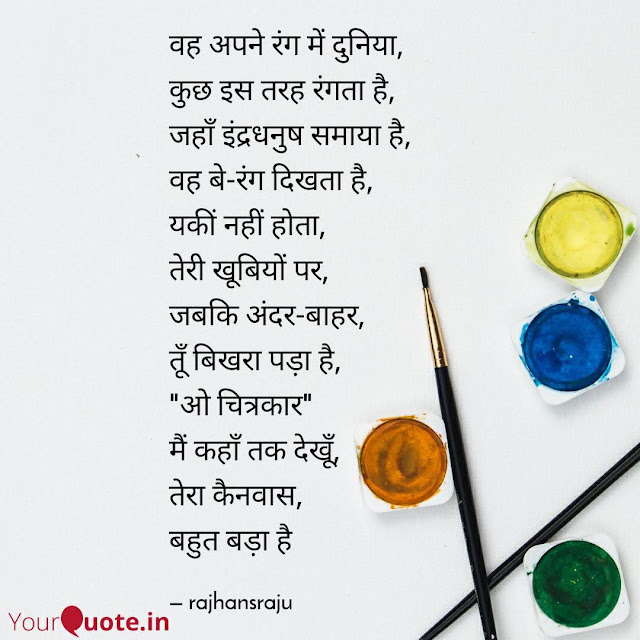 वह अपने रंग में दुनिया,
कुछ इस तरह रंगता है,
जहाँ इंद्रधनुष समाया है,
वह बे-रंग दिखता है,
यकीं नहीं होता,
तेरी खूबियों पर,
जबकि अंदर-बाहर,
तूँ बिखरा पड़ा है,
"ओ चित्रकार"
मैं कहाँ तक देखूँ,
तेरा कैनवास,
बहुत बड़ा है
– rajhansraju
YourQuote.in